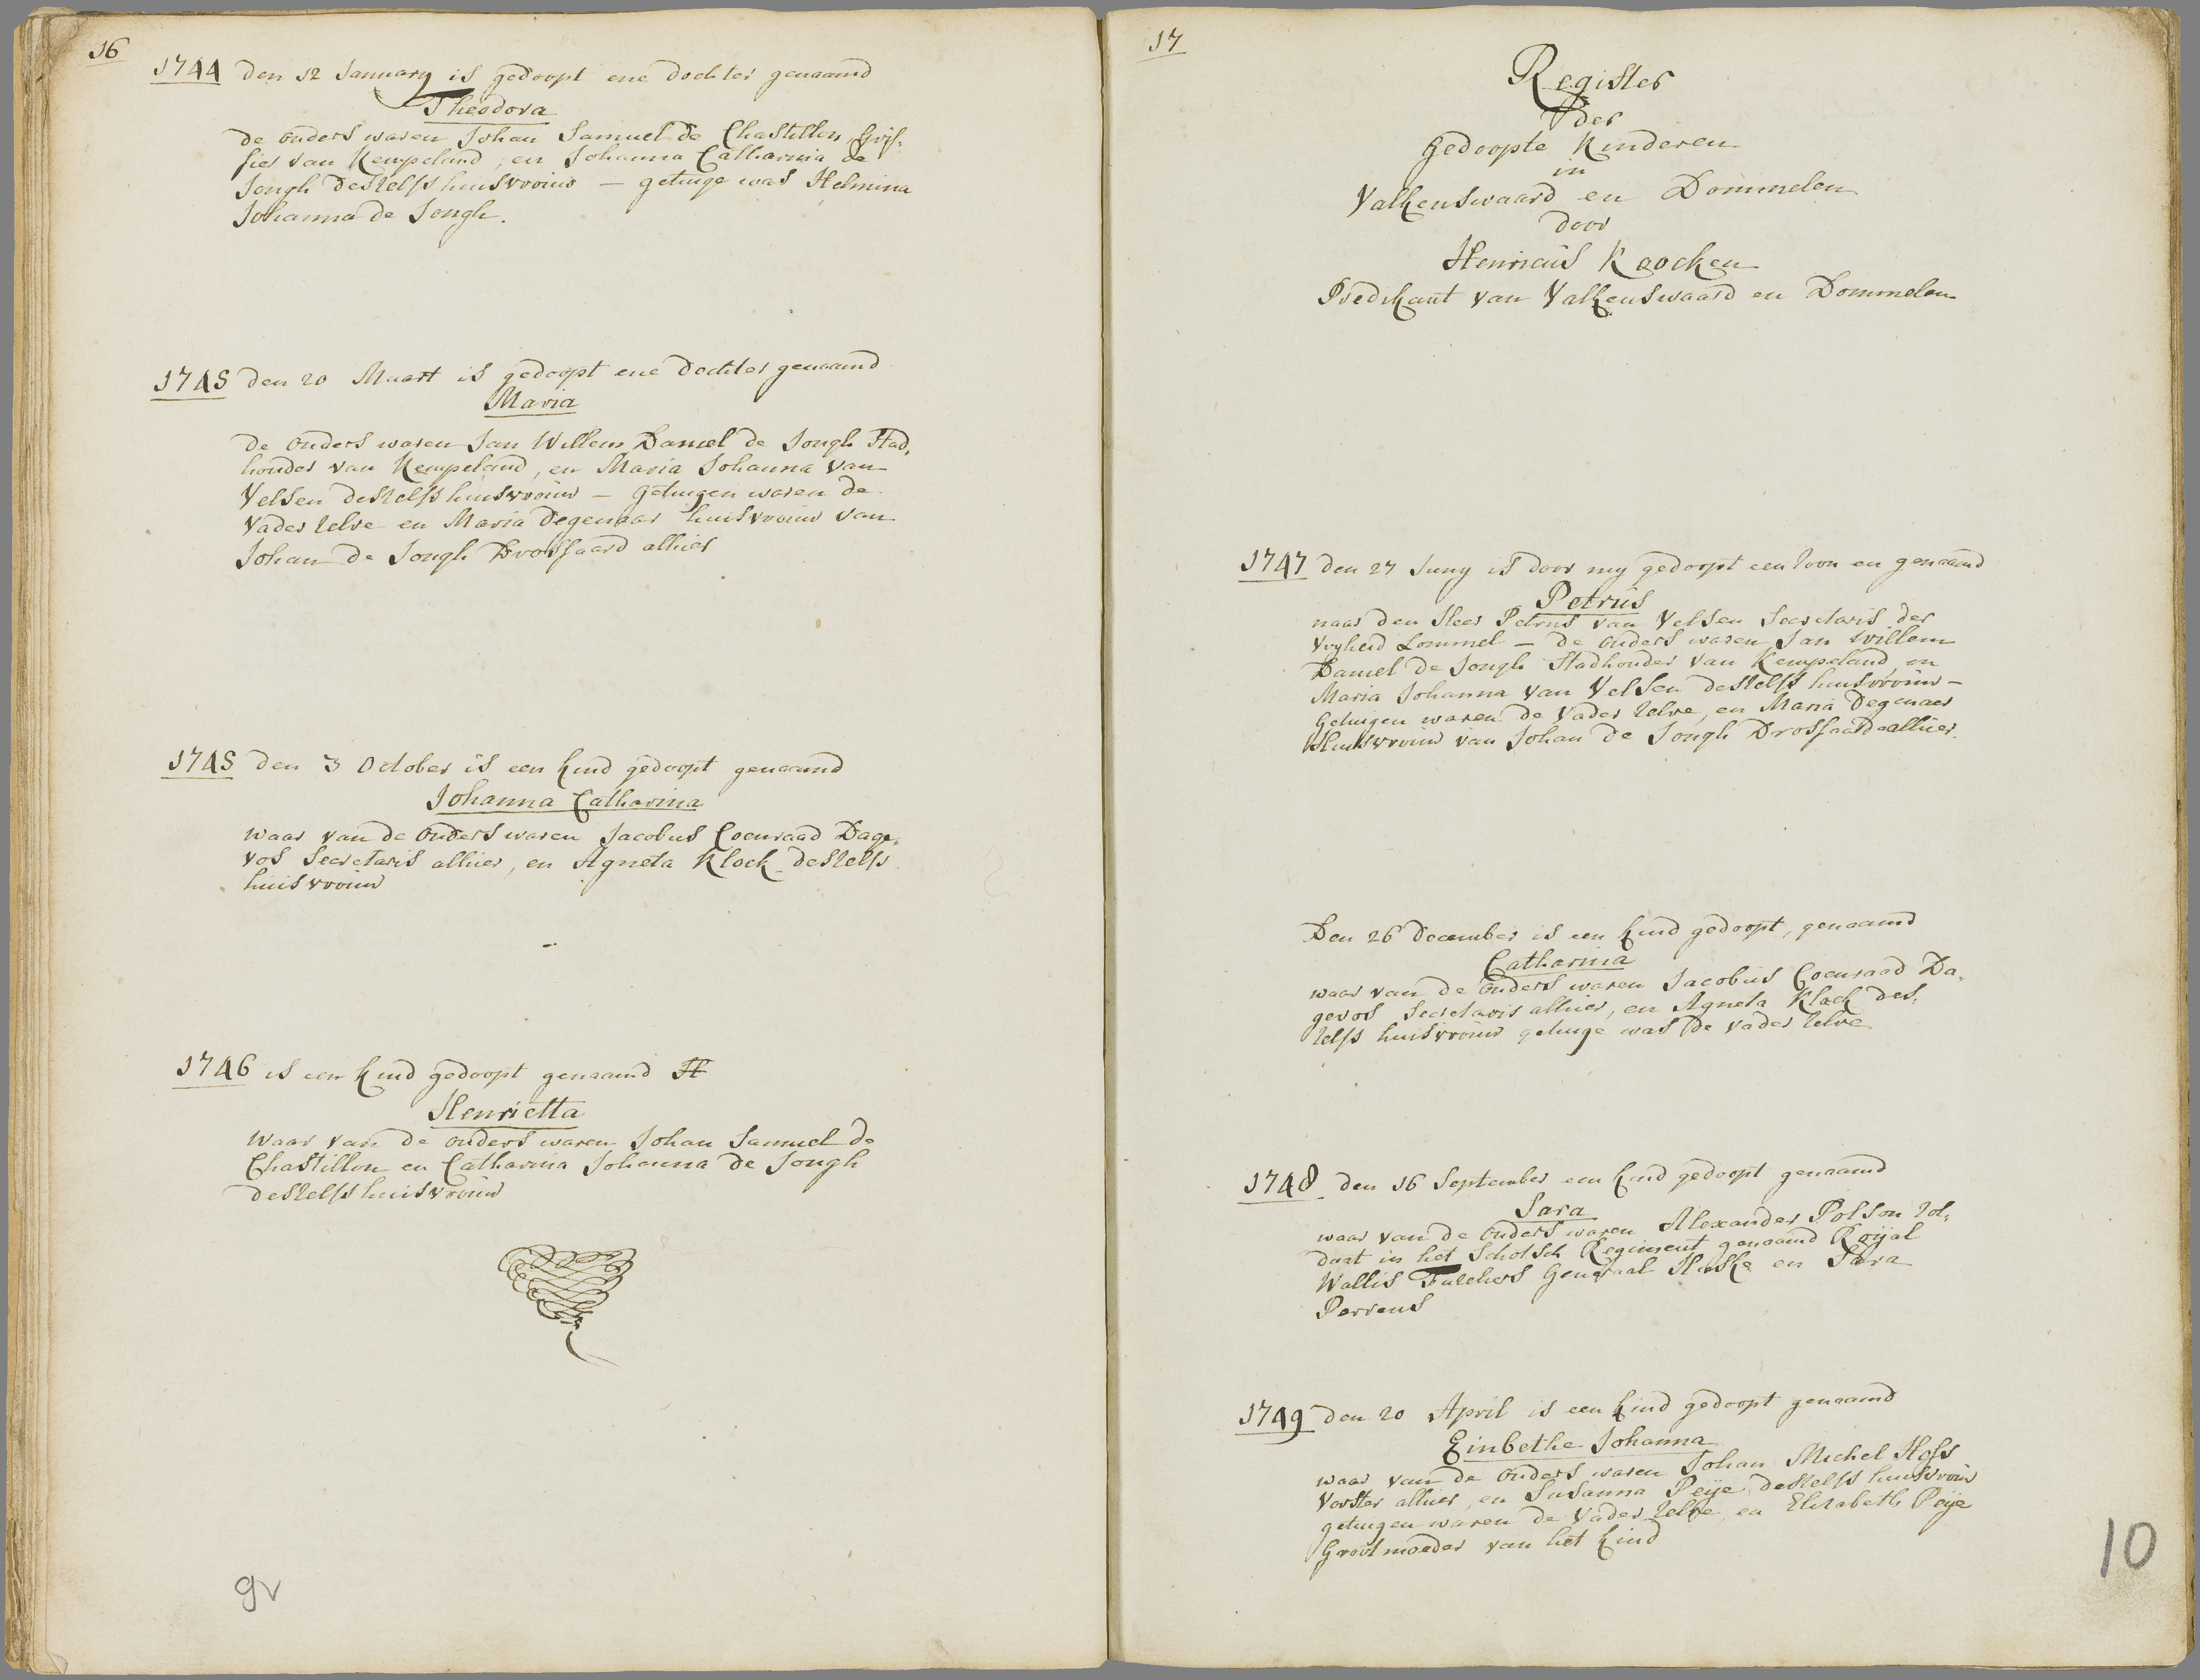 16
1744 den 12 January is gedoopt ene dochter genaamd
Theodora
de ouders waren Johan Samuel de Chastillon Grif-
fier van Kempeland, en Johanna Catharnia de
Jongh deszelfs huisvrouw — getuige was Helmina
Johanna de Jongh.
1745 den 20 Maart is gedoopt ene dochter genaamd
Maria
de ouders waren Jan Willem Daniel de Jongh Stad-
houder van Kempeland, en Maria Johanna van
Velsen deszelfs huisvrouw — getuigen waren de
vader zelve en Maria Degenaar huisvrouw van
Johan de Jongh Drossaard alhier
1745 den 3 October is een kind gedoopt genaamd
Johanna Catharina
waar van de ouders waren Jacobus Coenraad Dage-
vos Secretaris alhier, en Agneta Klock deszelfs
huisvrouw
1746 is een kind gedoopt genaamd H
Henrietta
waar van de ouders waren Johan Samuel de
Chastillon en Catharina Johanna de Jongh
deszelfs huisvrouw
9v
17
Register
der
Gedoopte Kinderen
in
Valkenswaard en Dommelen
door
Henricus Koocken
Predikant van Valkenswaard en Dommelen
1747 den 27 Juny is door my gedoopt een zoon en genaamd
Petrus
naar den Heer Petrus van Velsen Secretaris der
Vryheid Lommel — de ouders waren Jan Willem
Daniel de Jongh Stadhouder van Kempeland, en
Maria Johanna van Velsen deszelfs huisvrouw —
Getuigen waren de vader zelve, en Maria Degenaer
Huisvrouw van Johan de Jongh Drossaard alhier.
Den 26 December is een kind gedoopt, genaamd
Catharina
waar van de ouders waren Jacobus Coenraad Da-
gevos Secretaris alhier, en Agneta Klock des-
zelfs huisvrouw getuige was de vader zelve
1748 den 16 September een kind gedoopt genaamd
Sara
waar van de ouders waren Alexander Polson sol-
daat in het Schotsch Regiment genaamd Royal
Wallis Fuzeliers Generaal Huske en Sara
Perrens
1749 den 20 April is een kind gedoopt genaamd
Einbethe Johanna
waar van de ouders waren Johan Michel Hofs
Vorster alhier, en Susanna Peije deszelfs huisvrouw
getuigen waren de vader zelve, en Elizabeth Peije
Grootmoeder van het kind
10